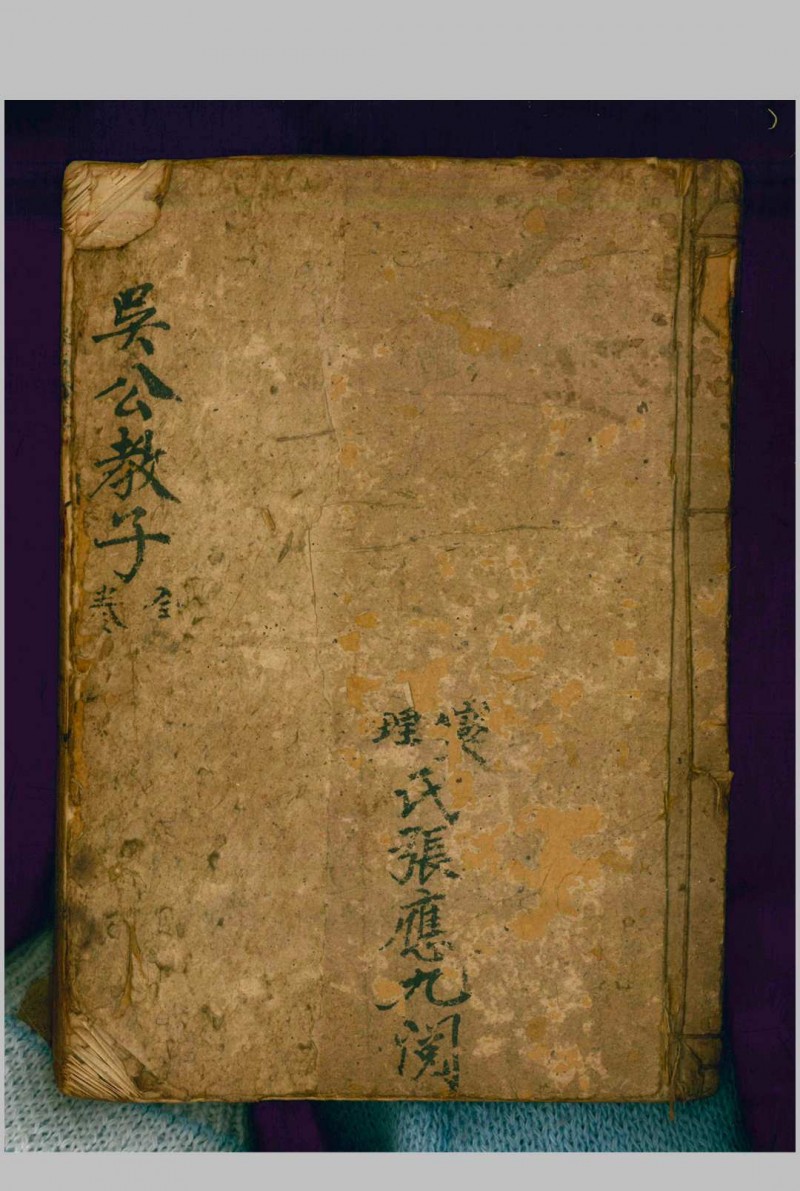 燮理氏張應九閱
吳公教子全卷